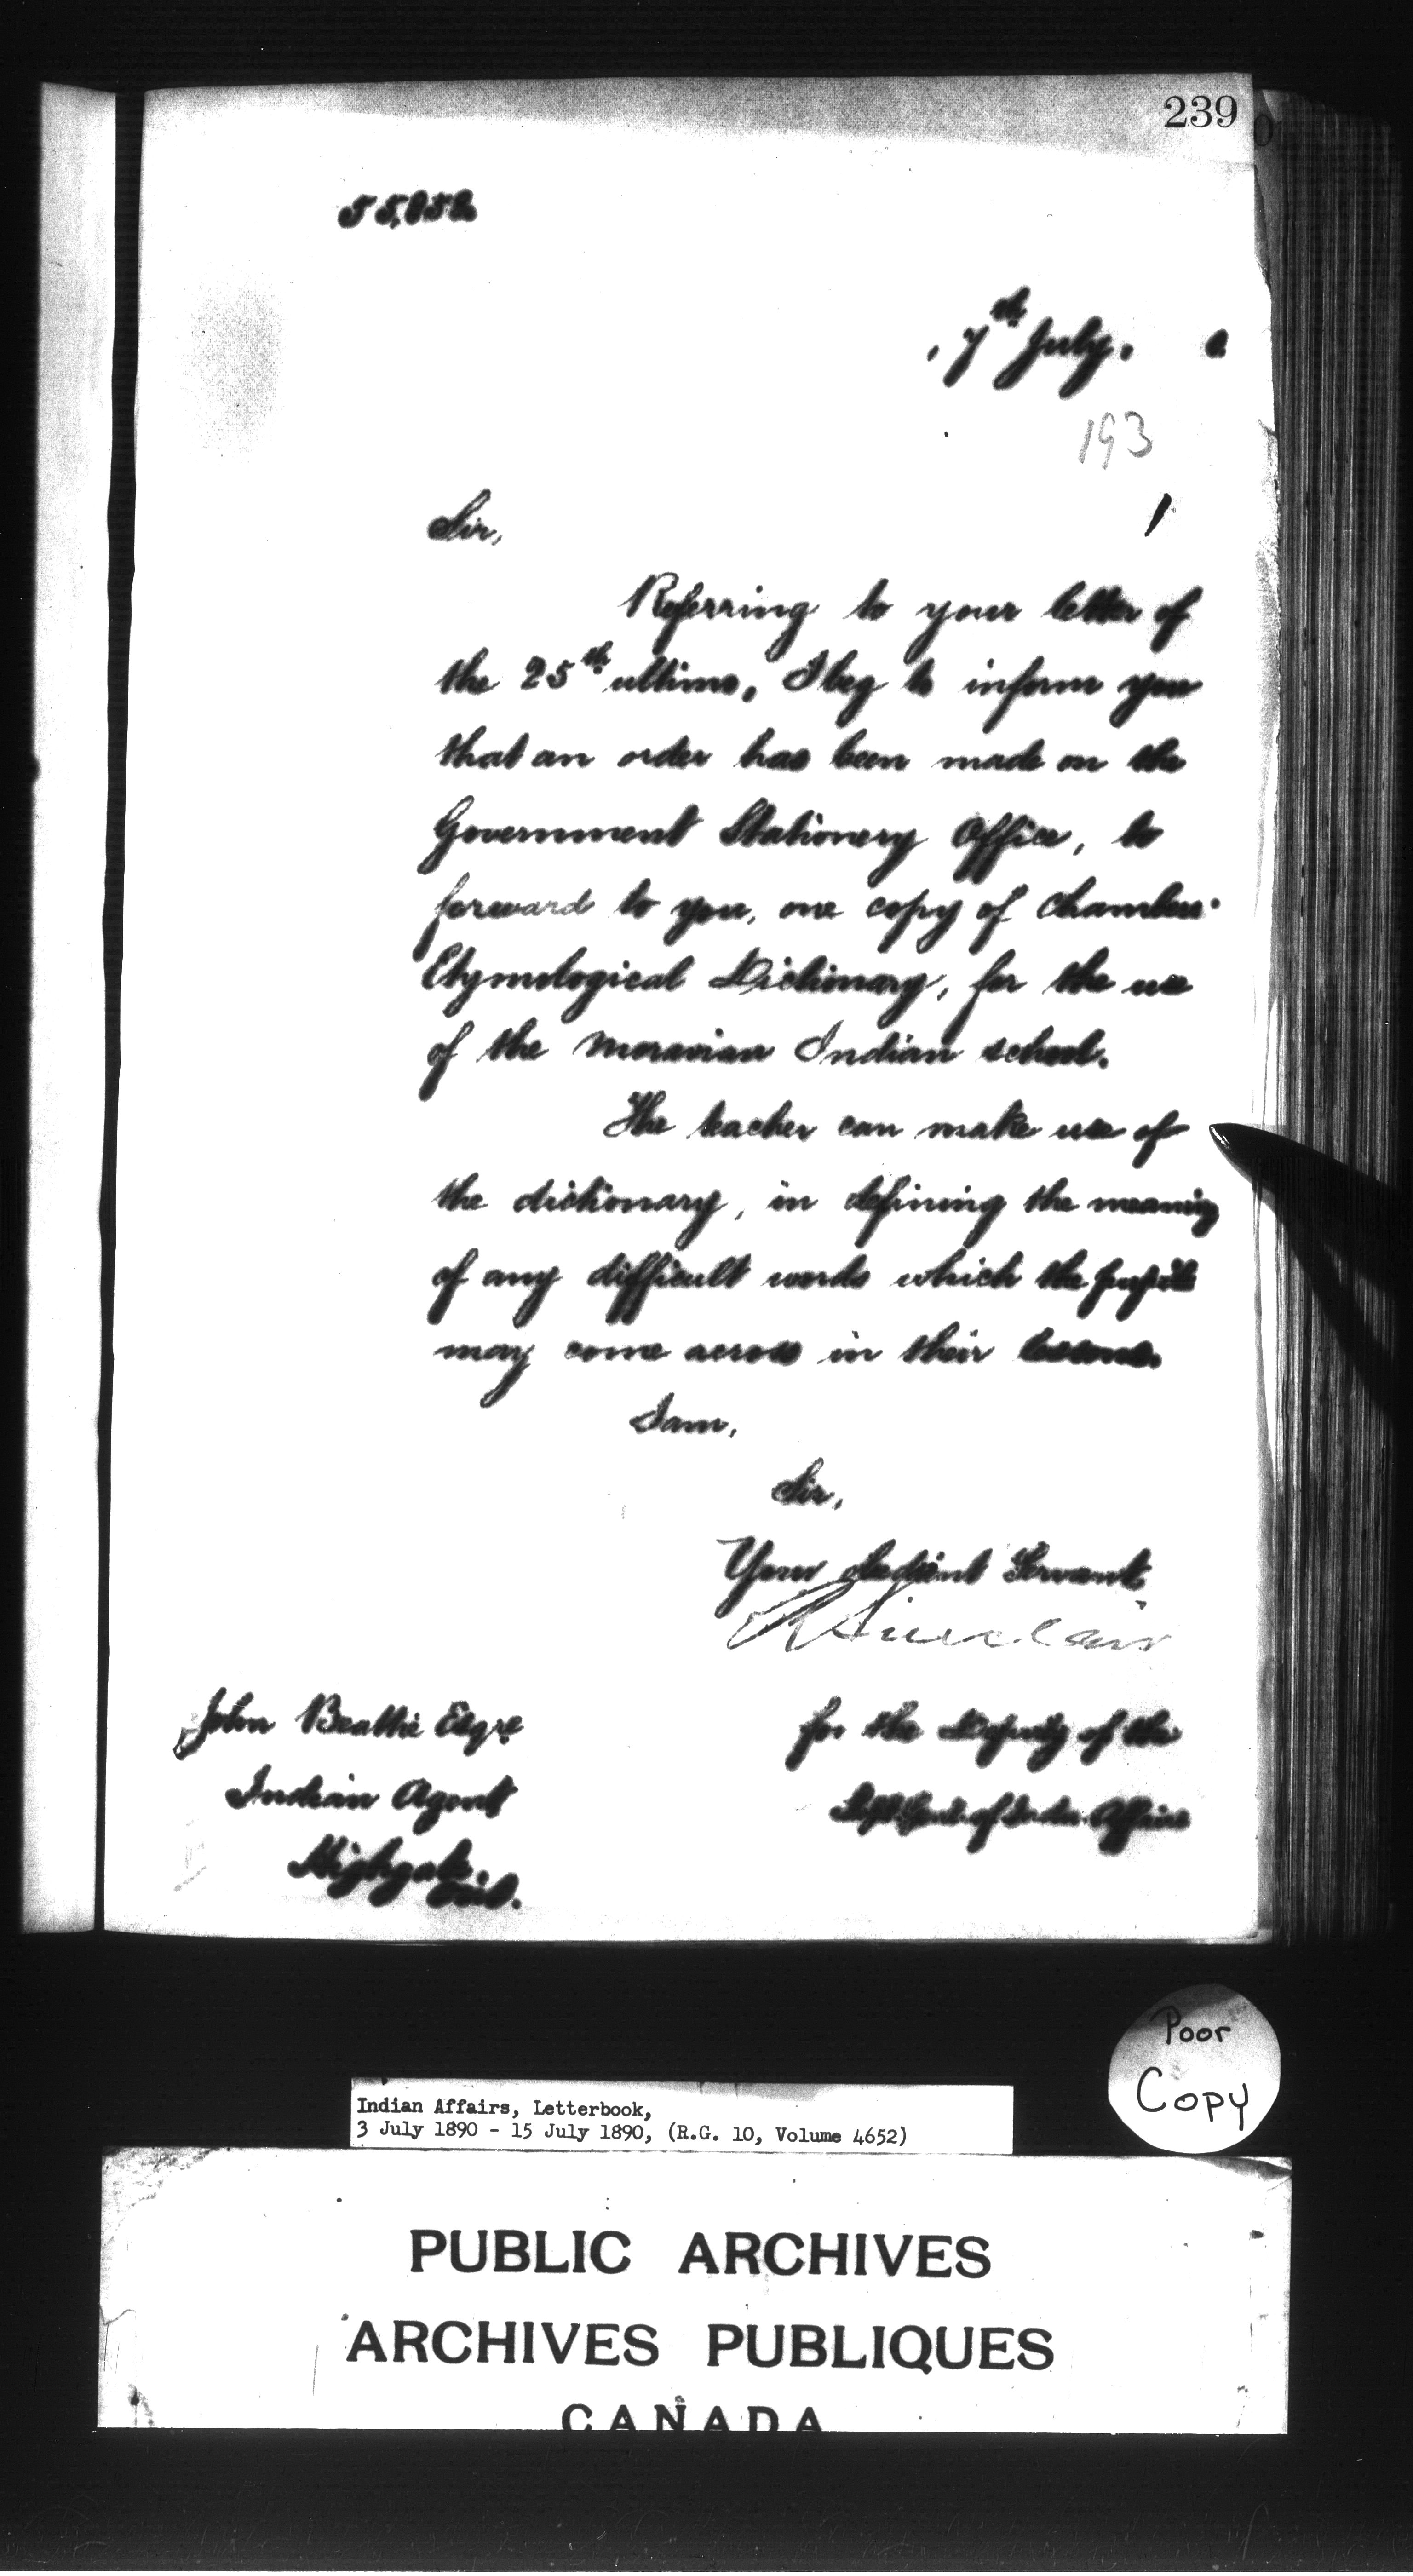 239
55,852
, 7th July. 0
193
1
Sir,
Referring to your letter of
the 25th ultimo, I beg to inform you
that an order has been made on the
Government Stationery Office, to
forward to you, one copy of Chambers'
Etymological Dictionary, for the use
of the Moravian Indian school.
The teacher can make use of
the dictionary, in defining the meaning
of any difficult words which the pupils
may come across in their lessons.
I am,
Sir,
Your obedient Servant,
R Sinclair
for the Deputy of the
Supt. Genl. of Indian Affairs
John Beattie Esqre
Indian Agent
Highgate.
Ont.
Poor
Copy
Indian Affairs, Letterbook,
3 July 1890 - 15 July 1890, (R.G. 10, Volume 4652)
PUBLIC ARCHIVES
ARCHIVES PUBLIQUES
CANADA